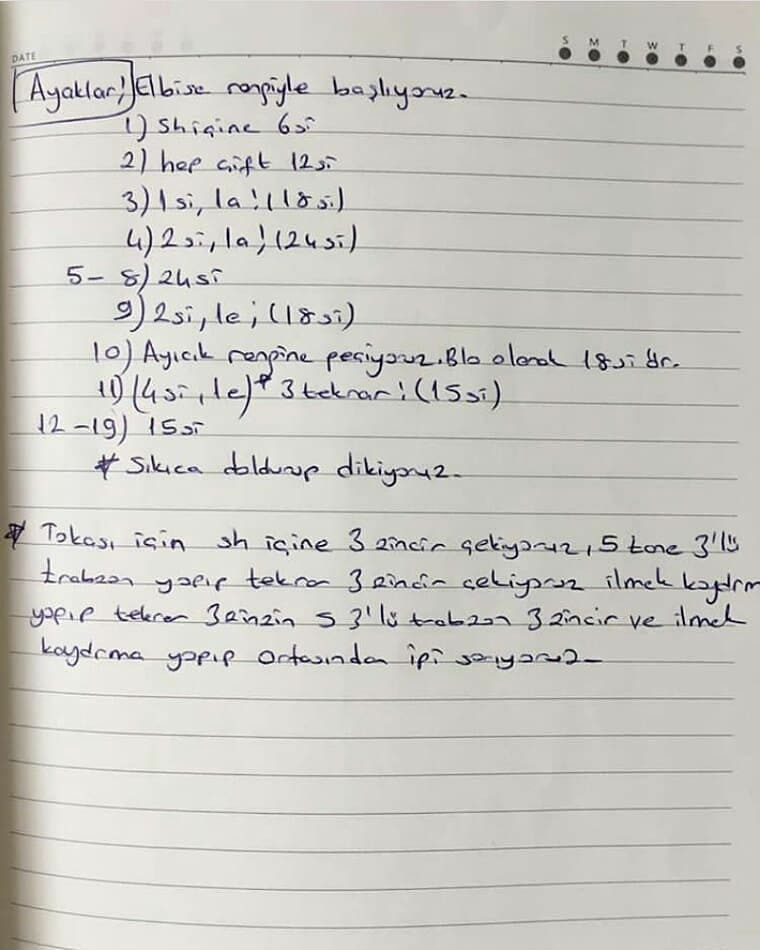 DATE
S M T W T F S
Ayaklar! Elbise rengiyle başlıyoruz.
1) Sh içine 6si
2) hep çift 12si
3) 1si, 1a! (18si)
4) 2si, 1a! (24si)
5- 8) 24si
9) 2si, 1e; (18si)
10) Ayıcık rengine geçiyoruz. Blo olarak 18si ör.
11) (4si, 1e)* 3 tekrar! (15si)
12-19) 15si
* Sıkıca doldurup dikiyoruz.
* Tokası için sh içine 3 zincir çekiyoruz, 5 tane 3'lü
trabzan yapıp tekrar 3 zincir çekiyoruz ilmek kaydırm
yapıp tekrar 3zinzin 5 3'lü trabzan 3 zincir ve ilmek
kaydırma yapıp ortasından ipi sarıyoruz.